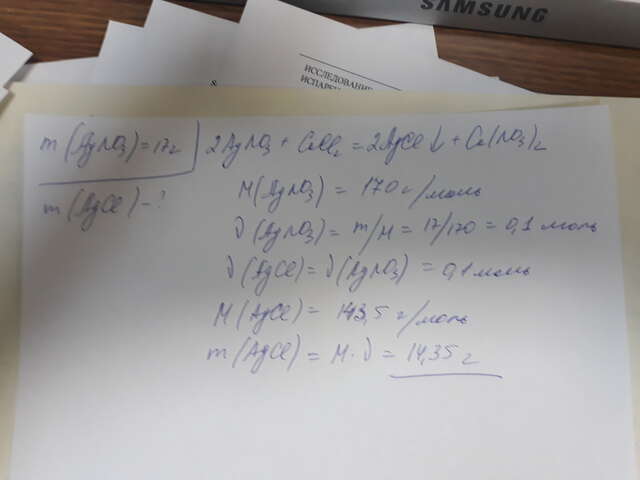 m(AgNO₃) = 17г
m(AgCl) - ?
2AgNO₃ + CaCl₂ = 2AgCl↓ + Ca(NO₃)₂
M(AgNO₃) = 170 г/моль
ν(AgNO₃) = m/M = 17/170 = 0,1 моль
ν(AgCl) = ν(AgNO₃) = 0,1 моль
M(AgCl) = 143,5 г/моль
m(AgCl) = M · ν = 14,35 г
ИССЛЕДОВАНИЕ
SAMSUNG